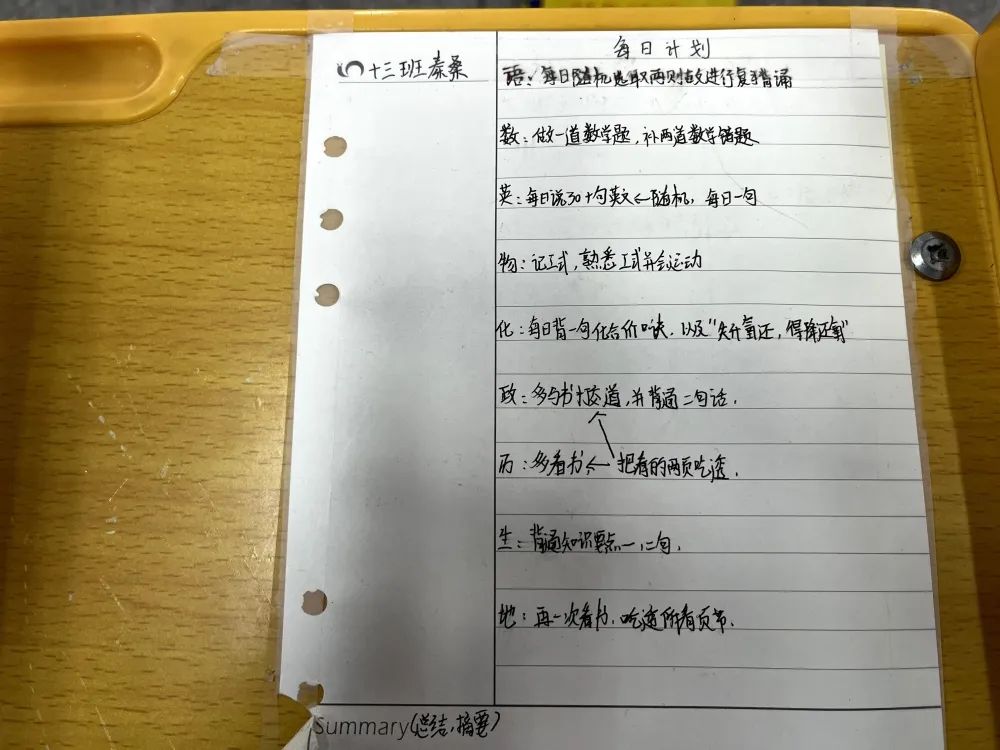 每日计划
十三班 秦桑
语：每日随机选取两则古文进行复习背诵
数：做一道数学题，补两道数学错题
英：每日说30+句英文←随机，每日一句
物：记工式，熟悉工式并会运动
化：每日背一句化合价口诀，以及"失升氧还，得降还氧"
政：多与书打交道，并背诵二句话．
历：多看书←把看的两页吃透．
生：背诵知识要点一，二句．
地：再一次看书．吃透所看页节．
Summary(总结，摘要)